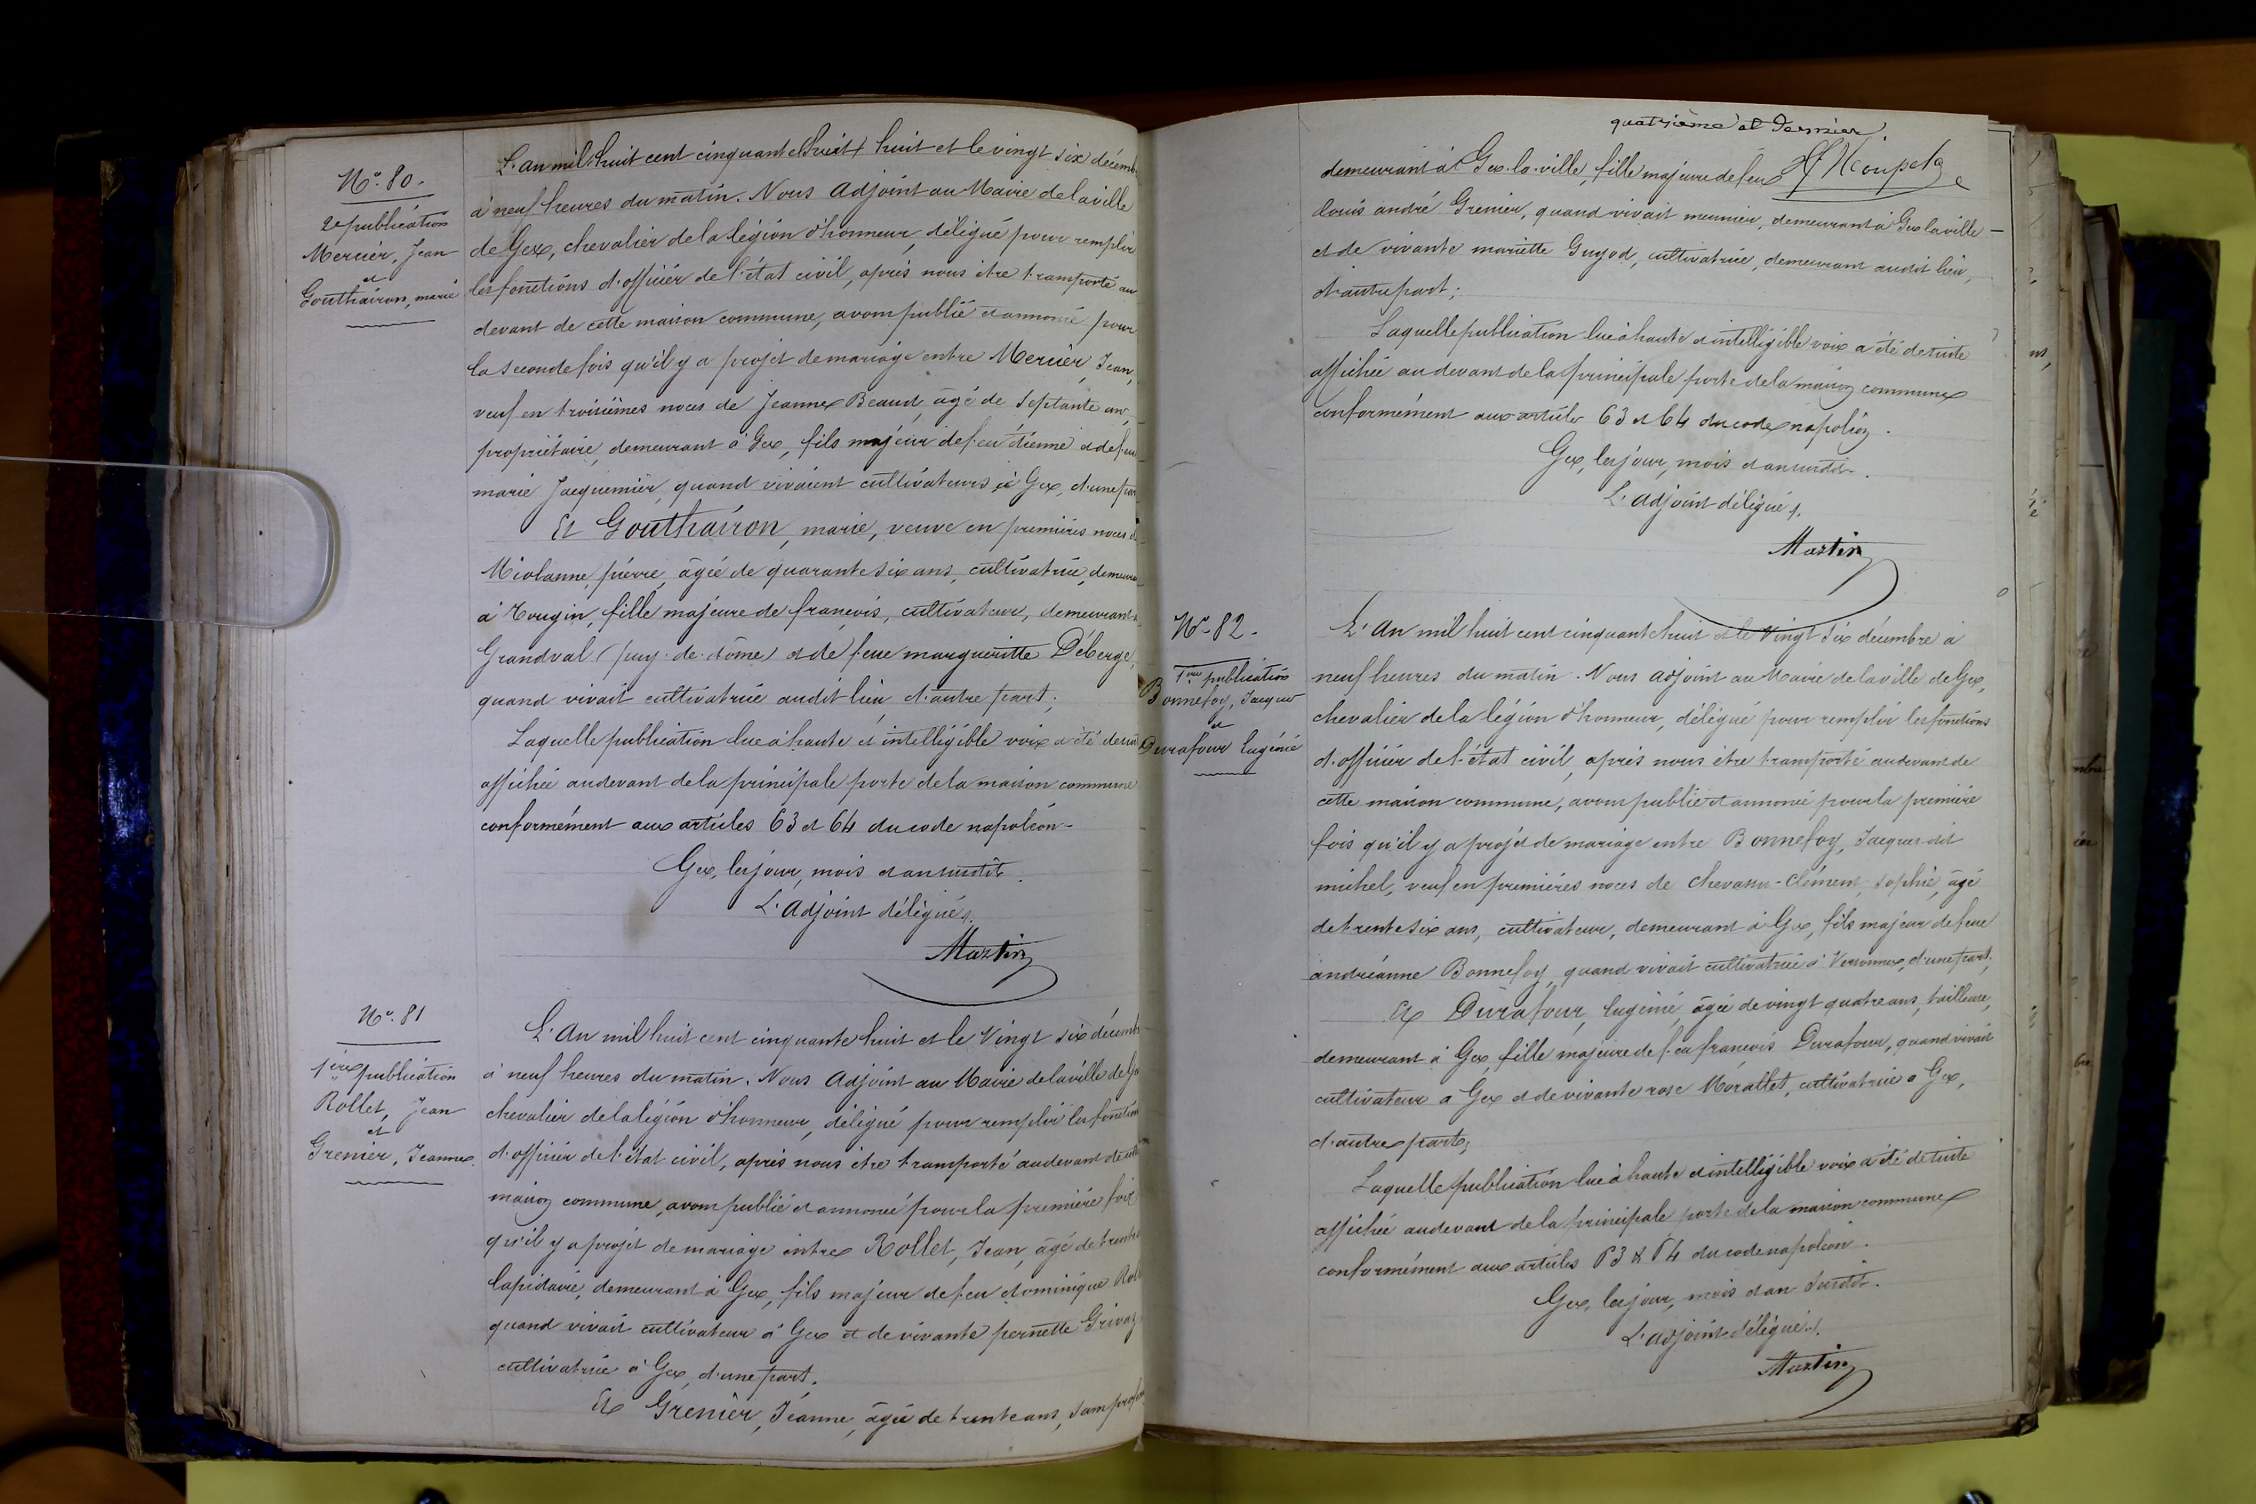 N° 80.
2e publication
Mercier, Jean
et
Gouthairon, marie
L'an mil huit cent cinquante huit et le vingt six décemb
à neuf heures du matin. Nous Adjoint au Maire de la ville
de Gex, chevalier de la légion d'honneur, délégué pour remplir
les fonctions d'officier de l'état civil, après nous être transporté au
devant de cette maison commune, avons publié et annoncé pour
la seconde fois qu'il y a projet de mariage entre Mercier, Jean,
veuf en troisièmes noces de Jeanne Beaud, âgé de septante ans,
propriétaire, demeurant à Gex, fils majeur de feu étienne et de feue
marie Jacquemier, quand vivaient cultivateurs à Gex, d'une part
Et Gouthairon, marie, veuve en premières noces de
Miolanne, pierre, âgée de quarante six ans, cultivatrice, demeura
à Tougin, fille majeure de françois, cultivateur, demeurant à
Grandval (puy-de-dôme) et de feue margueritte Déberge,
quand vivait cultivatrice audit lieu d'autre part;
Laquelle publication lue à haute et intelligible voix a été de suite
affichée au devant de la principale porte de la maison commune
conformément aux articles 63 et 64 du code napoléon-
Gex, les jour, mois et an susdits.
L'adjoint délégué.
Martin
N° 81
1ère publication
Rollet, Jean
et
Grenier, Jeanne.
L'An mil huit cent cinquante huit et le Vingt six décemb
à neuf heures du matin. Nous Adjoint au Maire de la ville de Ge
chevalier de la légion d'honneur, délégué pour remplir les fonction
d'officier de l'état civil, après nous être transporté au devant de cette
maison commune, avons publié et annoncé pour la première fois
qu'il y a projet de mariage entre Rollet, Jean, âgé de trente
lapidaire, demeurant à Gex, fils majeur de feu dominique Roll
quand vivait cultivateur à Gex et de vivante pernette Grivaz
cultivatrice à Gex, d'une part.
Et Grenier, Jeanne, âgée de trente ans, sans profes
quatrième et dernier.
demeurant à Gex-la-ville, fille majeure de feu
Louis andré Grenier, quand vivait meunier, demeurant à Gex la ville-
et de vivante mariette Guyod, cultivatrice, demeurant audit lieu,
d'autre part;
Laquelle publication lue à haute et intelligible voix a été de suite
affichée au devant de la principale porte de la maison commune
conformément aux articles 63 et 64 du code napoléon.
Gex, les jour, mois et an susdit.
L'adjoint délégué.
Martin
N° 82.
1ère publication
Bonnefoy, Jacques
et
Durafour Eugénie
L'An mil huit cent cinquante huit et le Vingt six décembre à
neuf heures du matin. Nous adjoint au Maire de la ville de Gex,
chevalier de la légion d'honneur, délégué pour remplir les fonctions
d'officier de l'état civil, après nous être transporté au devant de
cette maison commune, avons publié et annoncé pour la première
fois qu'il y a projet de mariage entre Bonnefoy, Jacques dit
michel, veuf en premières noces de Chevassu-Clément, sophie, âgé
de trente six ans, cultivateur, demeurant à Gex, fils majeur de feue
andréanne Bonnefoy, quand vivait cultivatrice à Versonnex, d'une part;
Et Durafour, Eugénie, âgée de vingt quatre ans, tailleuse,
demeurant à Gex, fille majeure de feu françois Durafour, quand vivait
cultivateur à Gex et de vivante rose Morallet, cultivatrice à Gex,
d'autre part;
Laquelle publication lue à haute et intelligible voix a été de suite
affichée au devant de la principale porte de la maison commune
conformément aux articles 63 & 64 du code napoléon.
Gex, les jour, mois et an susdit.
L'adjoint délégué.
Martin